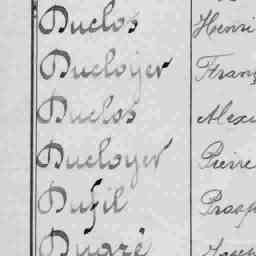 Duclos Henri
Ducloyer Franç
Duclos Alexi
Ducloyer Pierre
Dufil Prosp
Dugré Josep